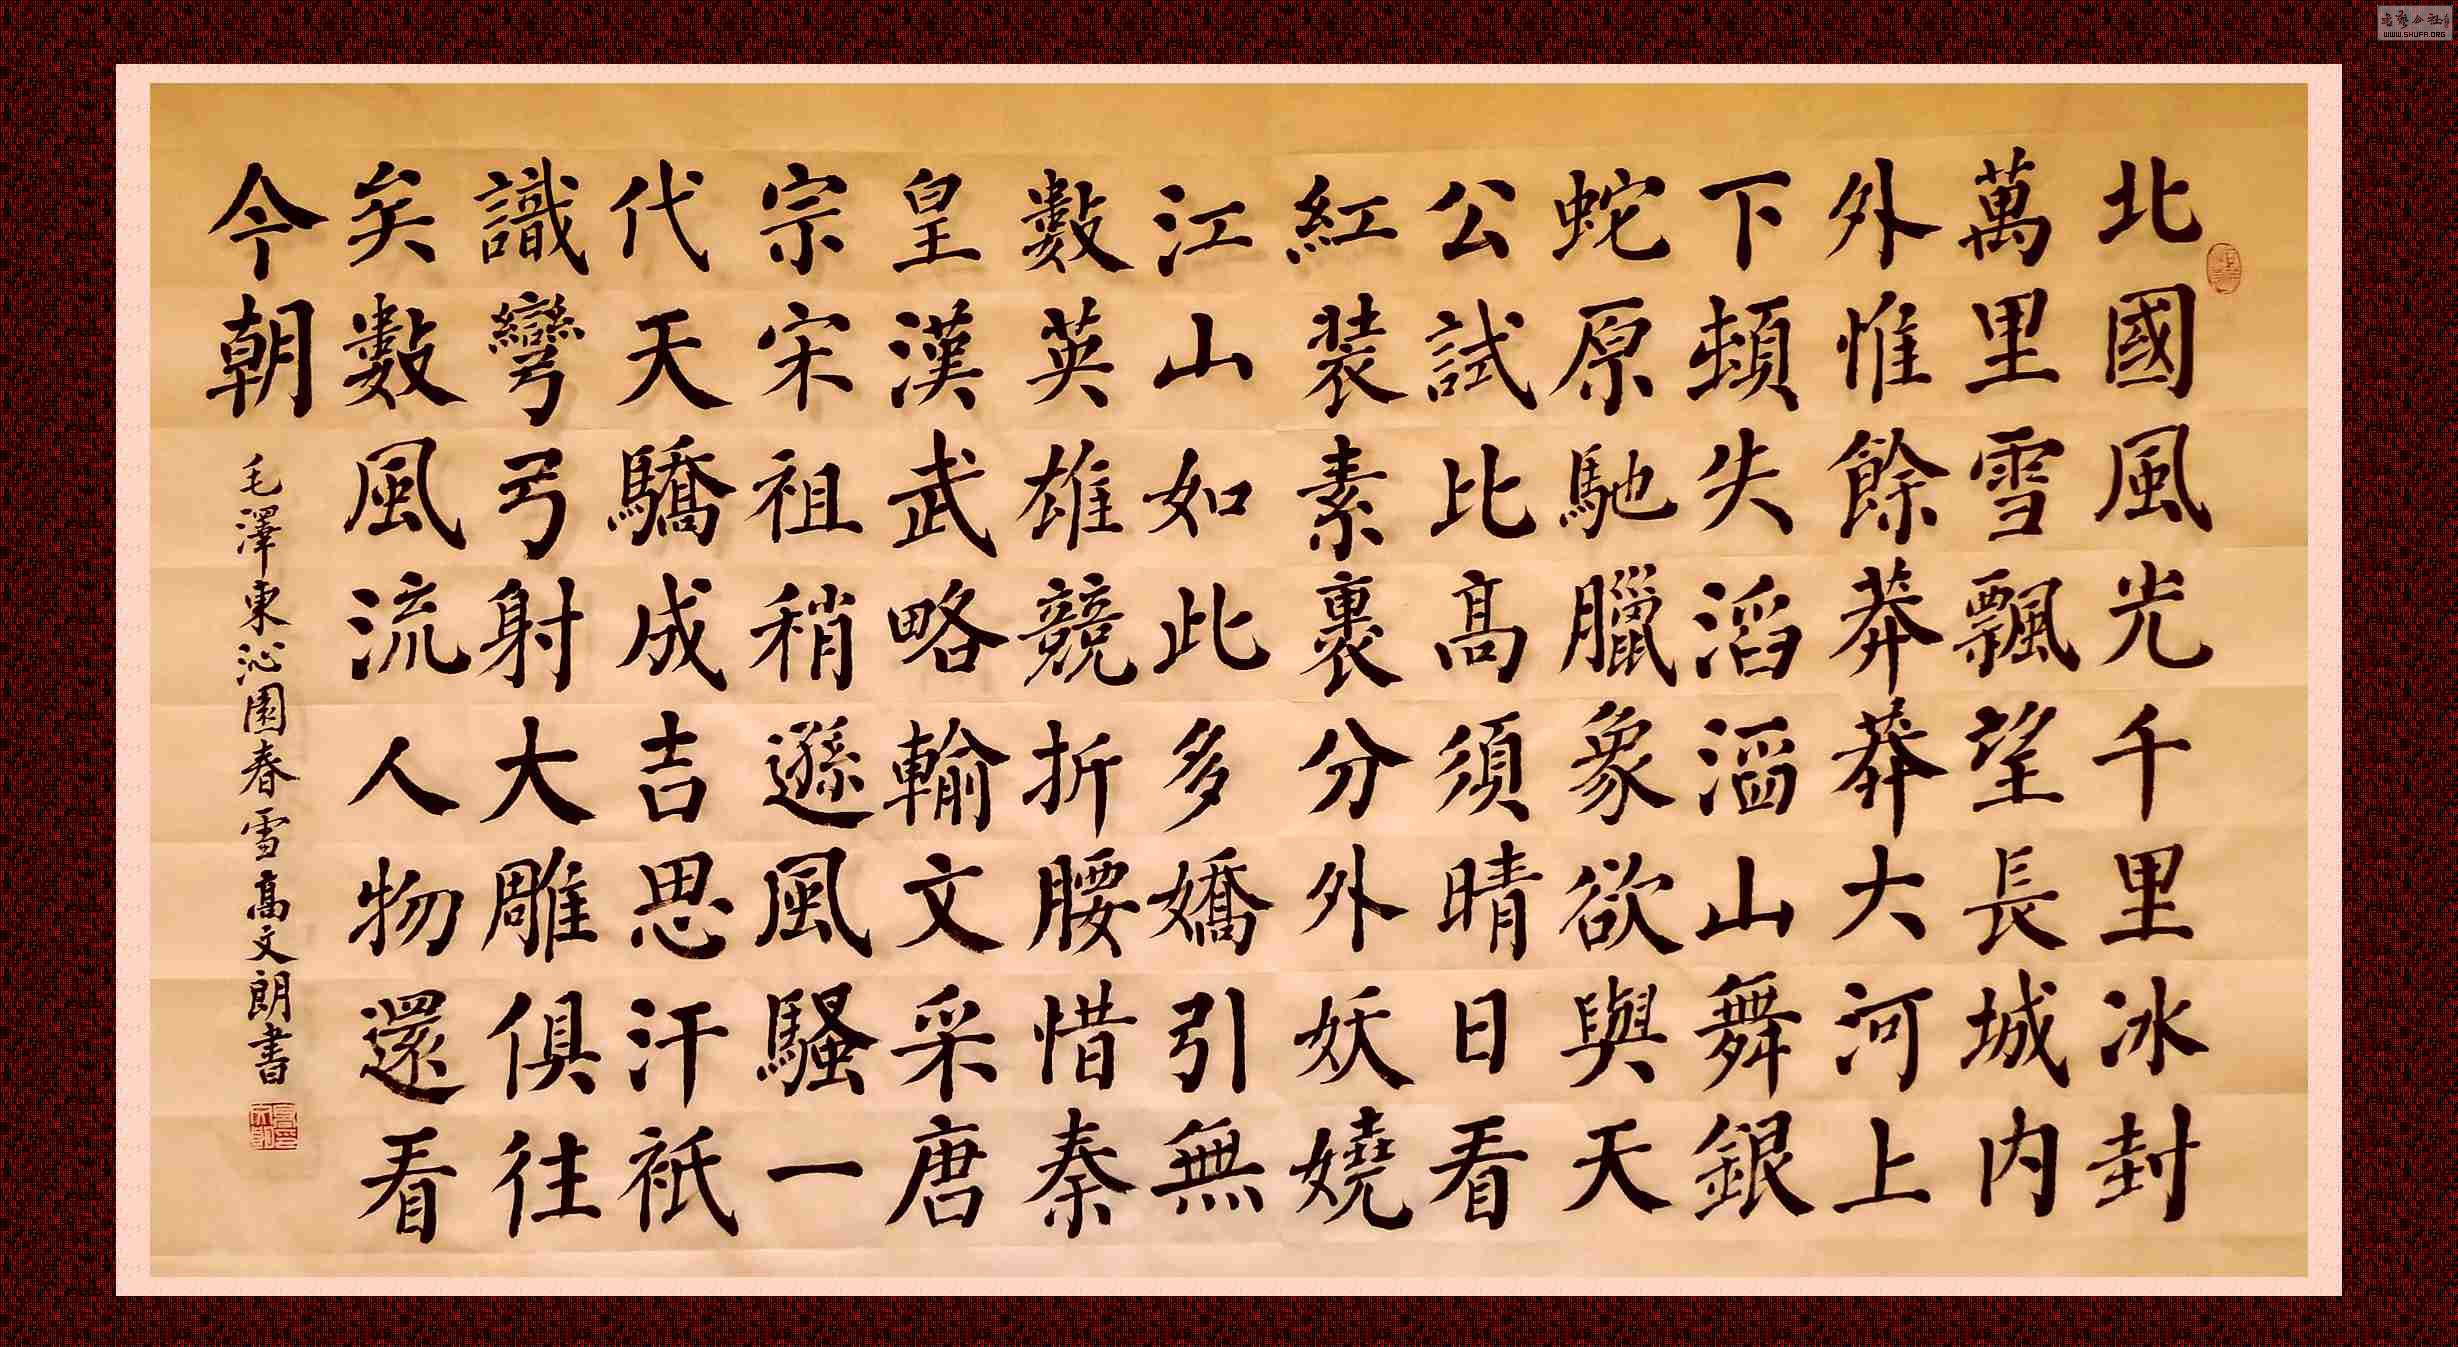 北國風光千里冰封
萬里雪飄望長城内
外惟餘莽莽大河上
下頓失滔滔山舞銀
蛇原馳臘象欲與天
公試比高須晴日看
紅裝素裹分外妖嬈
江山如此多嬌引無
數英雄競折腰惜秦
皇漢武略輸文采唐
宗宋祖稍遜風騷一
代天驕成吉思汗祇
識彎弓射大雕俱往
矣數風流人物還看
今朝
毛澤東沁園春雪高文朗書
WWW.SHUFA.ORG